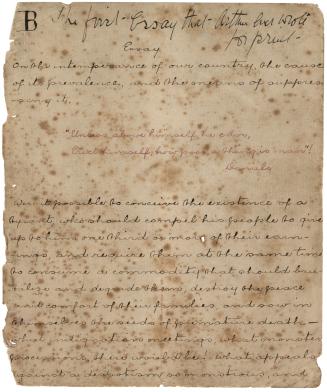 B
The first Essay that Arthur ever wrote
for print-
Essay
On the intemperance of our country, the cause
of its prevalence, and the means of suppres
sing it.
"Unless above himself he can,
Erect himself, how poor a thing is man"!
Daniels
Were it possible to conceive the existence of a
tyrant, who should compel his people to give
up to him one third or more of their earn-
ings, and require them at the same time
to consume a commodity that should bru-
tilize and degrade them, destroy the peace
and comfort of their families, and sow in
themselves the seeds of premature death—
what indignation meetings, what monster
processions, there would be! what appeals
against a despotism so monstrous, and